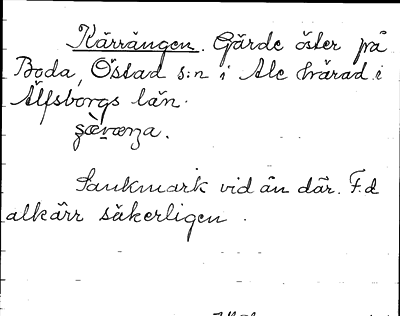 Kärrängen. Gärde öster på
Boda, Östad s:n i Ale härad i
Älfsborgs län.
Sankmark vid ån där. F.d
alkärr säkerligen.